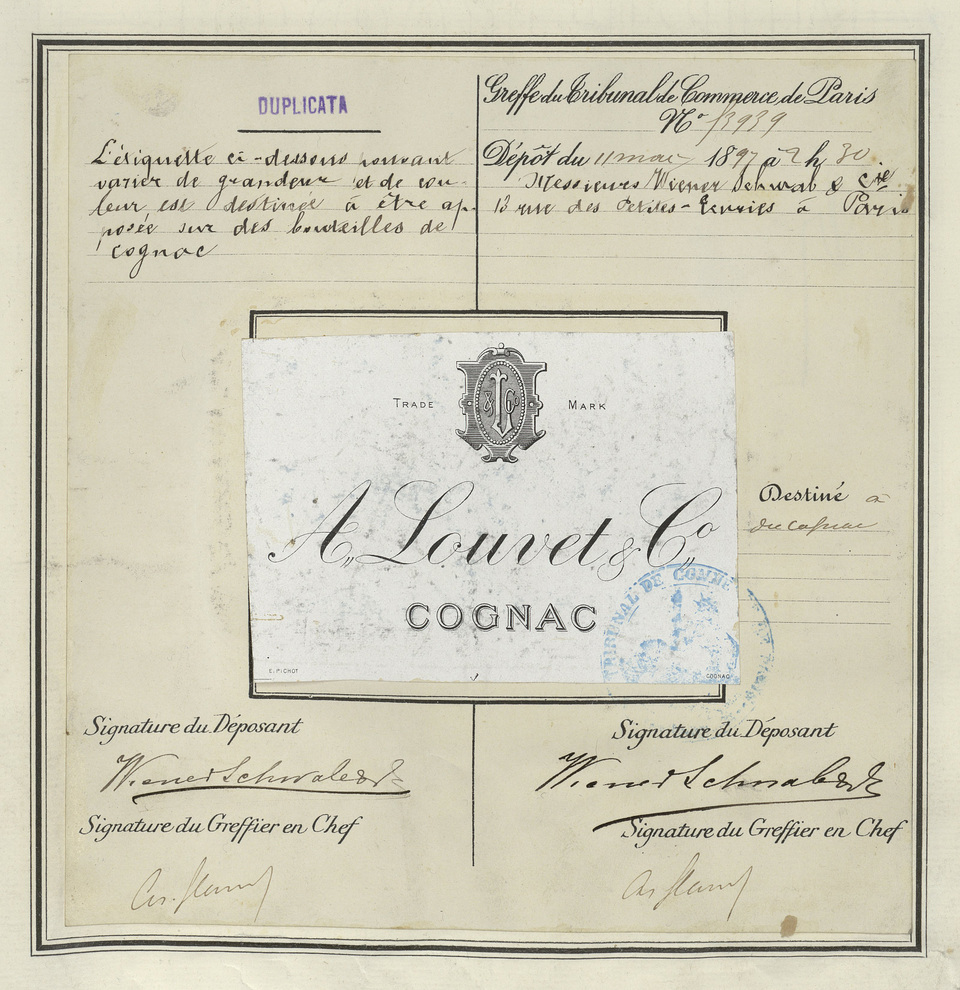 DUPLICATA
L'étiquette ci-dessous pouvant
varier de grandeur et de cou-
leur est destinée à être ap-
posée sur des bouteilles de
cognac
Greffe du Tribunal de Commerce de Paris
No
Dépôt du 11 mai 1897 à 2 h 30
Messieurs Wiener Schwab & Cie
13 rue des Petites-Ecuries à Paris
TRADE MARK
& Co
A. Louvet & Co
COGNAC
E. PICHOT
COGNAC
TRIBUNAL DE COMME
Destiné à
du cognac
Signature du Déposant
Wiener Schwab &
Signature du Greffier en Chef
Signature du Déposant
Wiener Schwab &
Signature du Greffier en Chef